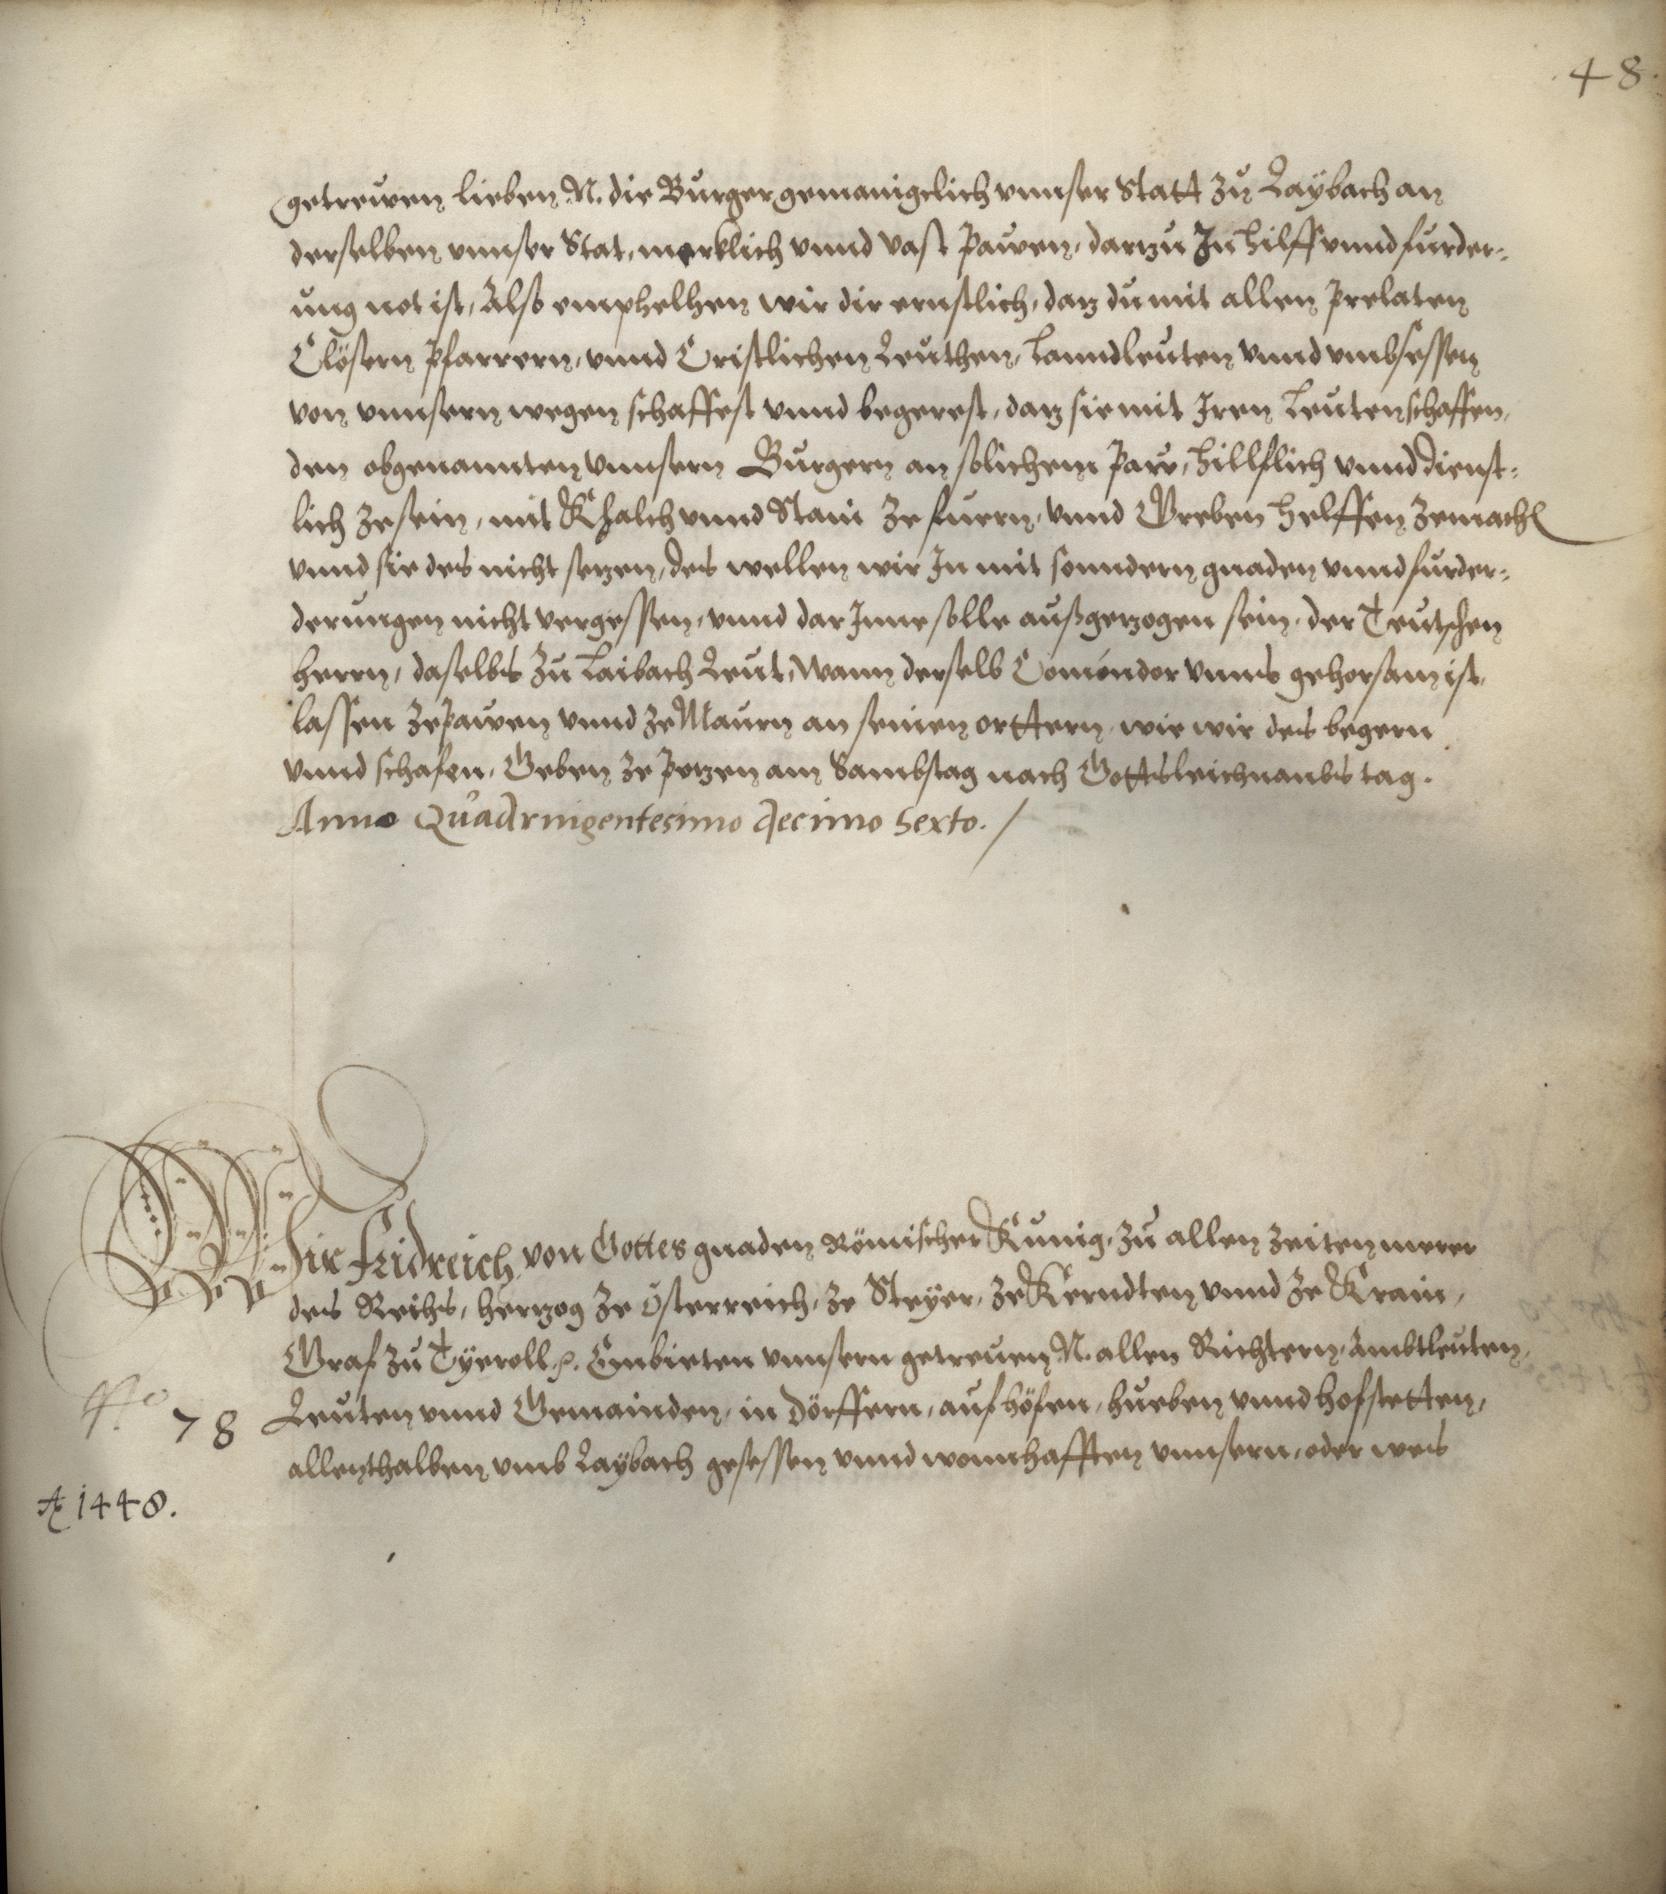 48.
getrewen lieben N. die Burger gemainigclich vnnser Statt zu Laÿbach an
derselben vnnser Stat, merklich vnnd vast pawen, darzu In hilff vnnd furder-
ung not ist, Also emphelhen wir dir ernstlich, daz du mit allen Prelaten
Clöstern Pfarrern, vnnd Cristlichen Leuthen, Lanndleuten vnnd vmbsessen
von vnnsern wegen schaffest vnnd begerest, daz sie mit Iren Leuten schaffen,
den obgenannten vnnsern Burgern an solichem Paw, hillflich vnnd dienst-
lich ze sein, mit Khalch vnnd Stain ze furrn, vnnd Greben helffen zemachen
vnnd sie des nicht setzen, des wellen wir In mit sonndern gnaden vnnd furder-
derungen nicht vergessen, vnnd dar Inne solle außgezogen sein, der Teutschen
herrn, daselbs zu Laibach Leut, Wann derselb Comendor vnns gehorsam ist,
lassen ze pawen vnnd ze Maurn an seinen orttern, wie wir des begern
vnnd schafen, Geben ze Potzen am Sambstag nach Gottsleichnambs tag.
Anno Quadringentesimo decimo sexto. /
Wir Fridreich von Gottes gnaden Römischer Kunig, zu allen zeiten merer
des Reichs, herzog ze Österreich, ze Steyer, ze Kerndten vnnd ze Krain,
Graf zu Tÿeroll .p. Embieten vnnsern getreuen N. allen Richtern, Ambtleuten,
Leuten vnnd Gemainden, in Dörffern, auf höfen, hueben vnnd hofstetten,
No 78
allenthalben vmb Laÿbach gesessen vnnd wonnhafften vnnsern, oder wes
A 1448.